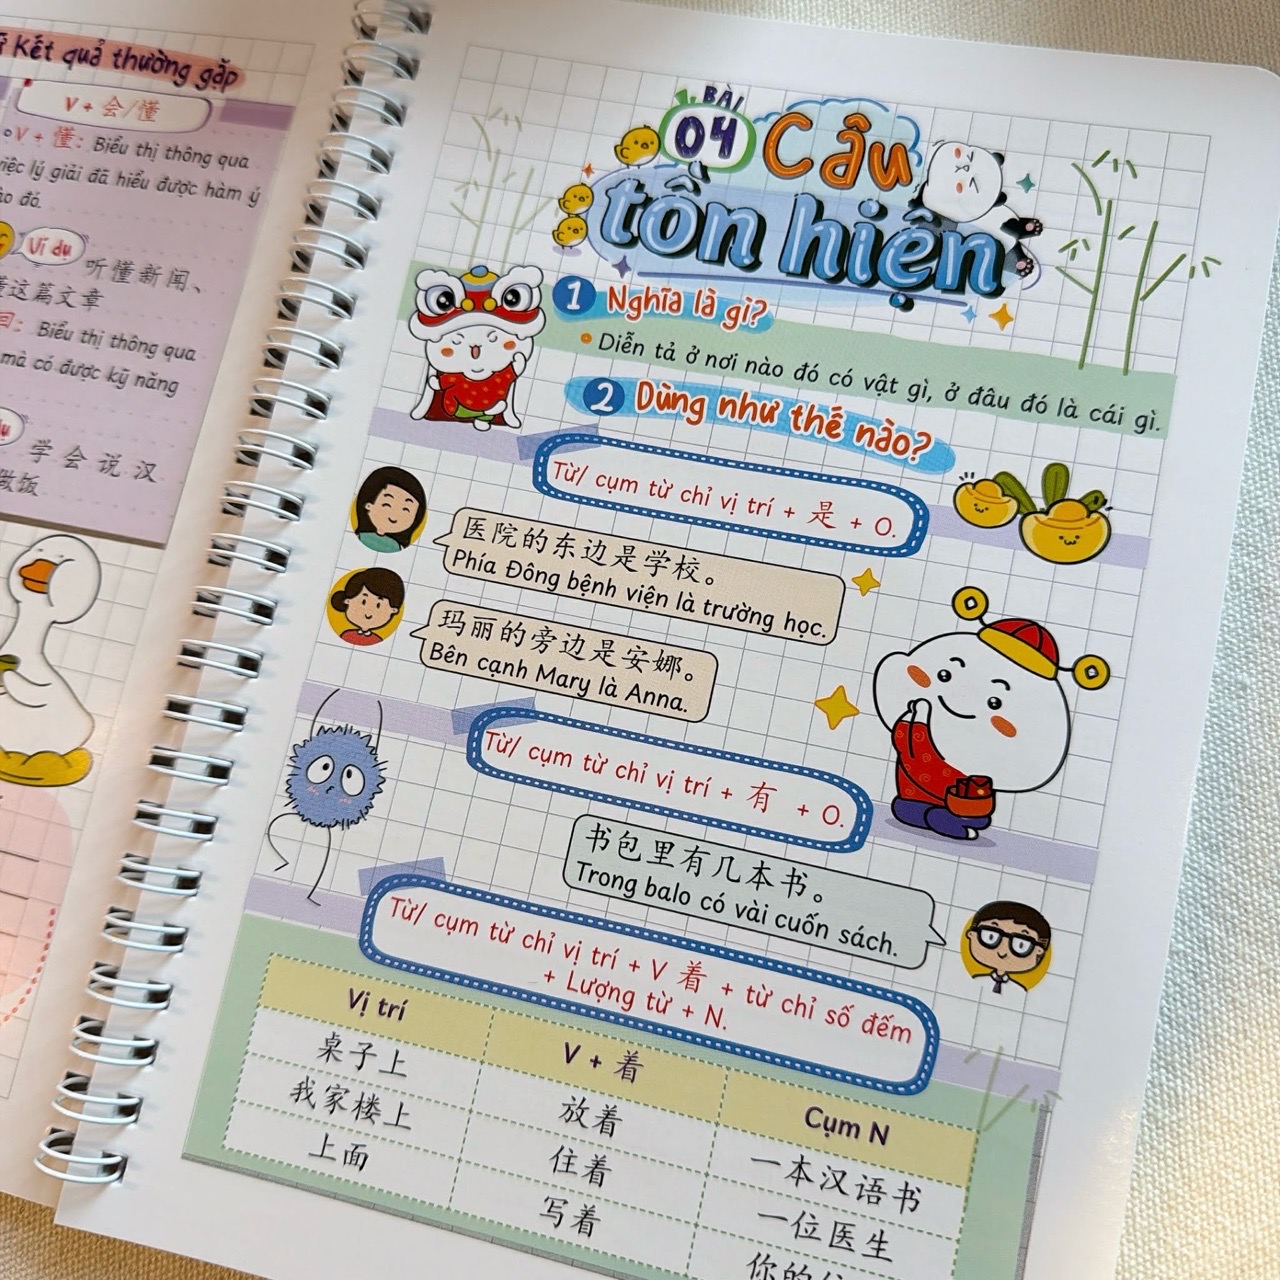 Kết quả thường gặp
V + 会/懂
V + 懂: Biểu thị thông qua
việc lý giải đã hiểu được hàm ý
đó.
Ví dụ
听懂新闻、
这篇文章
Biểu thị thông qua
mà có được kỹ năng
学会说汉
做饭
BÀI
04
Câu
tồn hiện
1 Nghĩa là gì?
Diễn tả ở nơi nào đó có vật gì, ở đâu đó là cái gì.
2 Dùng như thế nào?
Từ/ cụm từ chỉ vị trí + 是 + O.
医院的东边是学校。
Phía Đông bệnh viện là trường học.
玛丽的旁边是安娜。
Bên cạnh Mary là Anna.
Từ/ cụm từ chỉ vị trí + 有 + O.
书包里有几本书。
Trong balo có vài cuốn sách.
Từ/ cụm từ chỉ vị trí + V 着 + từ chỉ số đếm
+ Lượng từ + N.
Vị trí V + 着 Cụm N
桌子上 放着 一本汉语书
我家楼上 住着 一位医生
上面 写着 你的